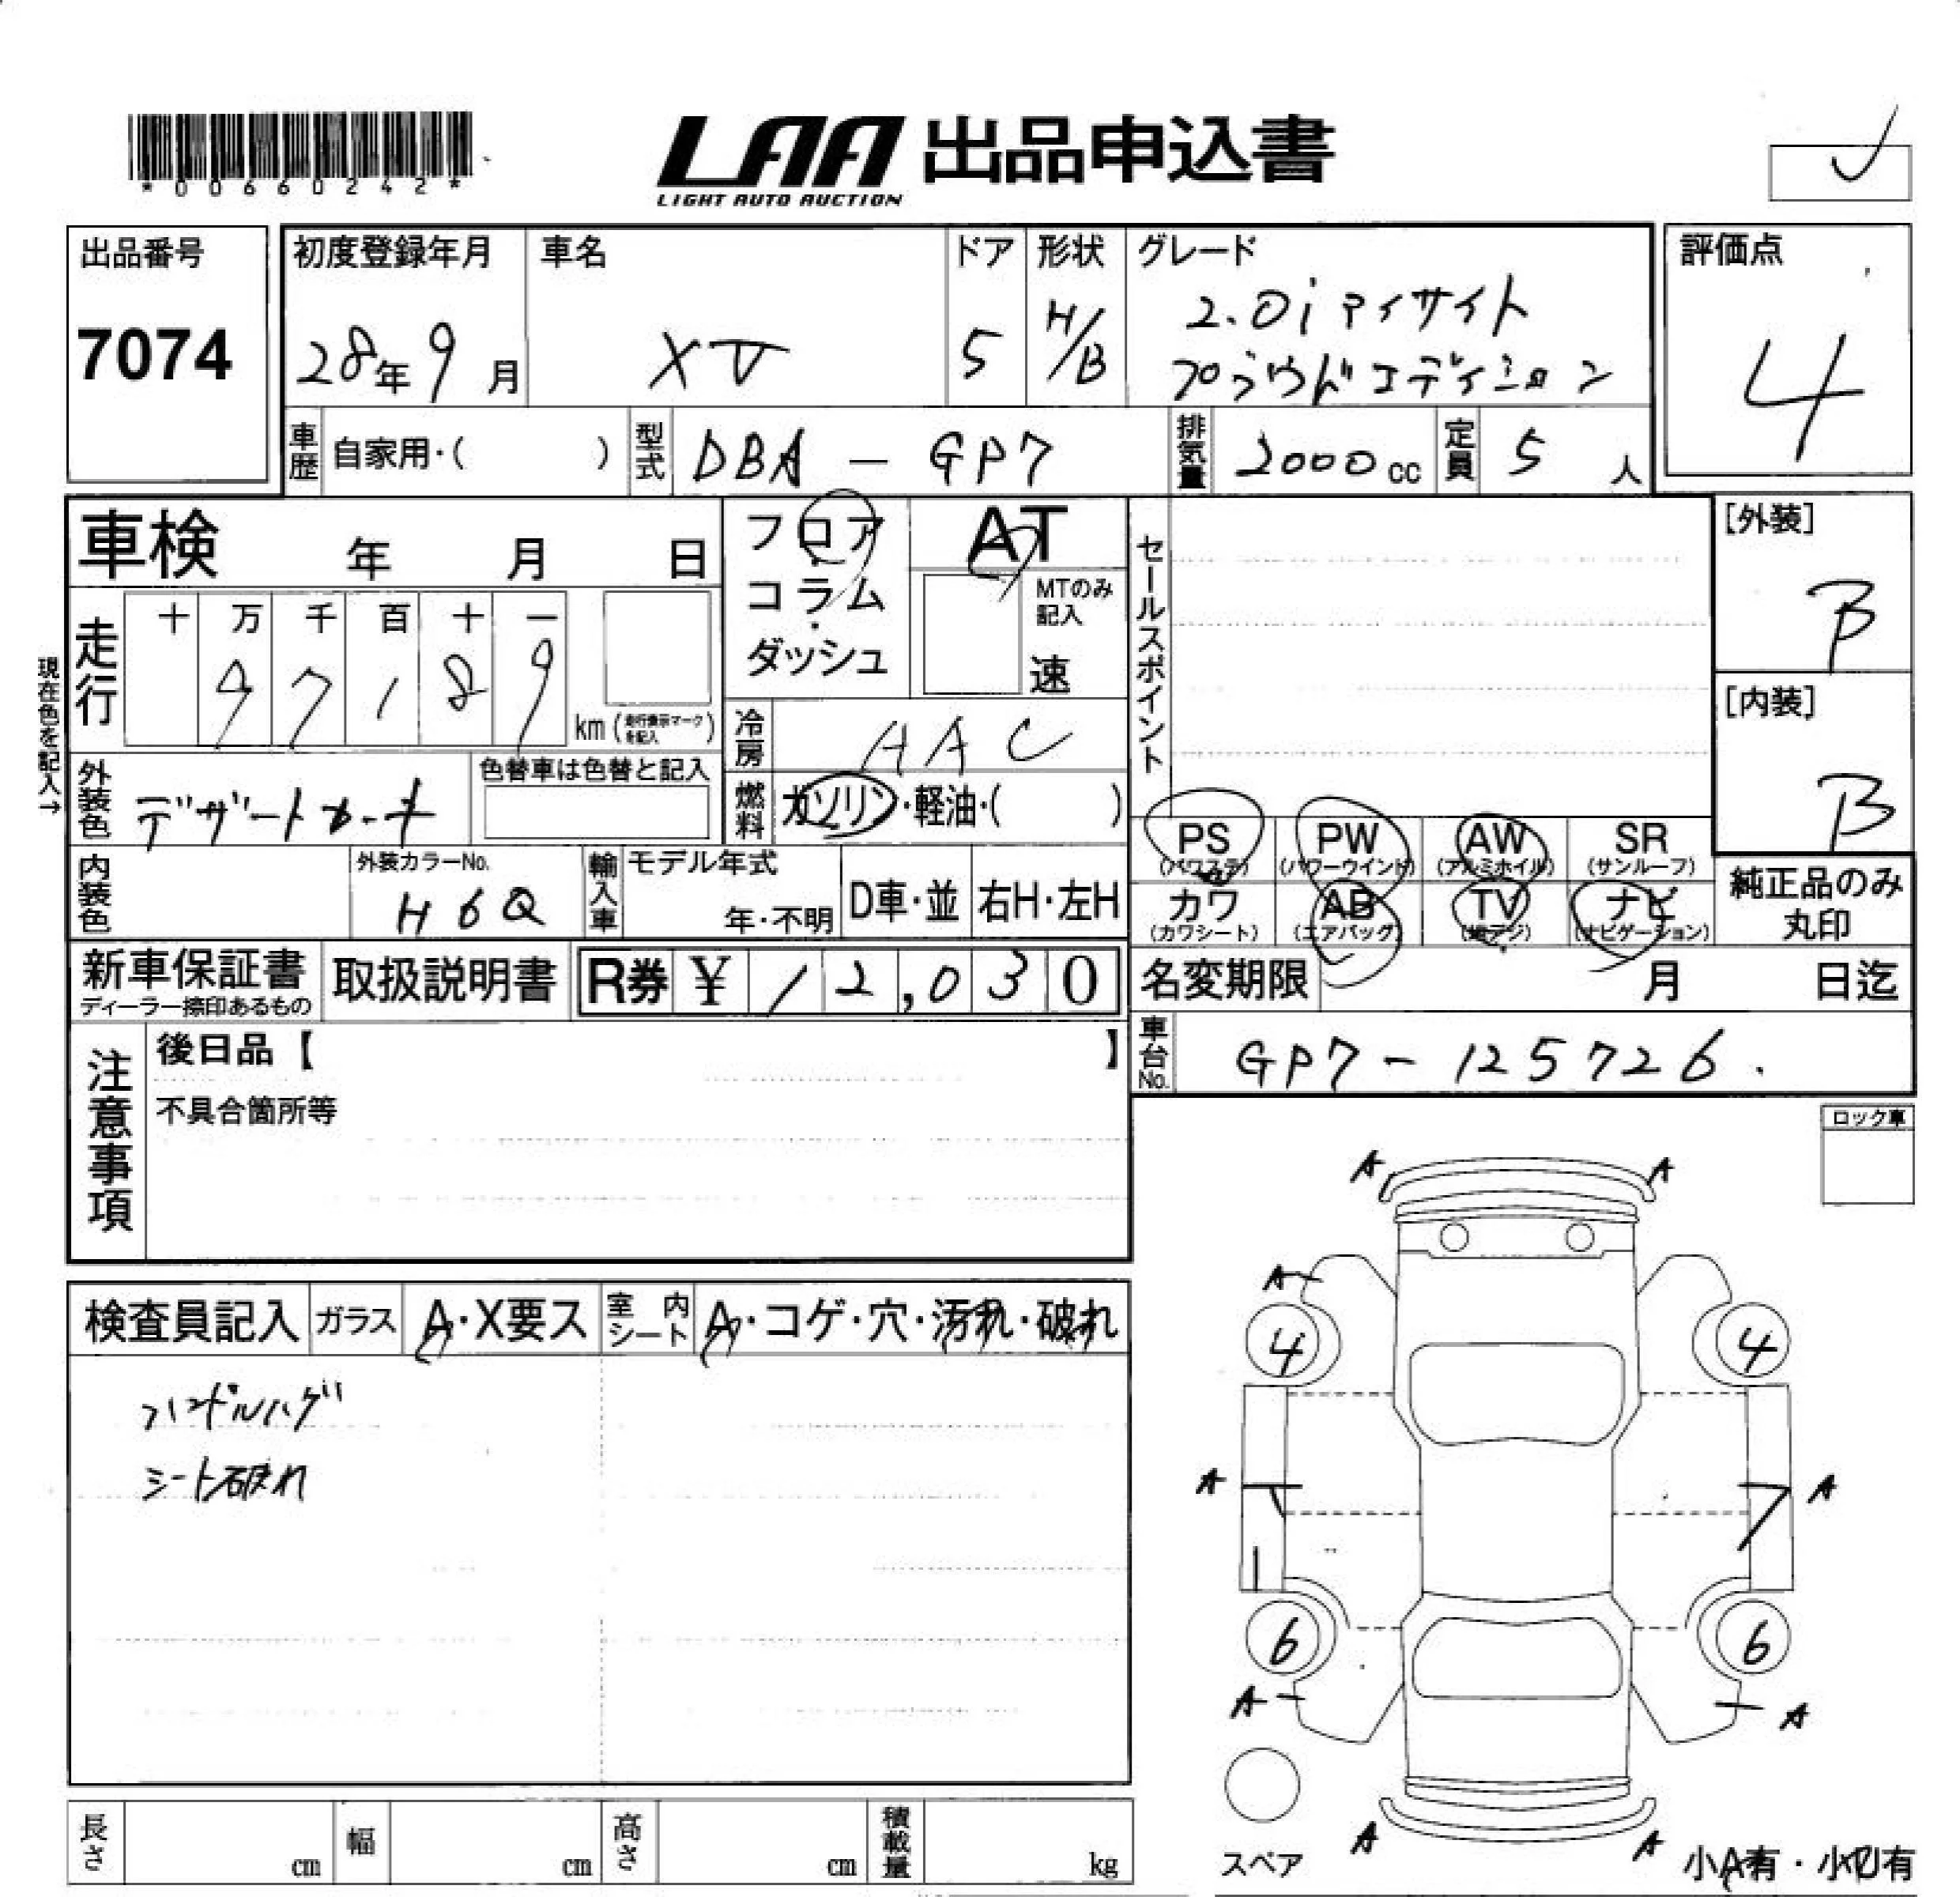 *00660242*
LAA 出品申込書
LIGHT AUTO AUCTION
出品番号
7074
初度登録年月
28年9月
車名
XV
ドア
5
形状
H/B
グレード
2.0i アイサイト
プラウドエディション
評価点
4
車歴 自家用・( )
型式 DBA - GP7
排気量 2000cc
定員 5人
車検 年 月 日
フロア・コラム・ダッシュ
AT
MTのみ記入
速
セールスポイント
[外装]
B
[内装]
B
現在色を記入→
走行
十 万 千 百 十 一
97189
km (走行表示マークを記入)
冷房 AAC
外装色 デザートカーキ
色替車は色替と記入
燃料 ガソリン・軽油・( )
PS (パワステ)
PW (パワーウインド)
AW (アルミホイル)
SR (サンルーフ)
カワ (カワシート)
AB (エアバッグ)
TV (地デジ)
ナビ (ナビゲーション)
純正品のみ丸印
内装色
外装カラーNo.
H6Q
輸入車
モデル年式
年・不明
D車・並
右H・左H
新車保証書
ディーラー捺印あるもの
取扱説明書
R券 ¥ 12,030
名変期限 月 日迄
車台No. GP7-125726.
注意事項
後日品【 】
不具合箇所等
ロック車
検査員記入
ガラス A・X要ス
室内シート A・コゲ・穴・汚れ・破れ
ハンドルハゲ
シート破れ
A A
A
4 4
A A
6 6
A A
スペア
A A
小A有・小U有
長さ cm
幅 cm
高さ cm
積載量 kg